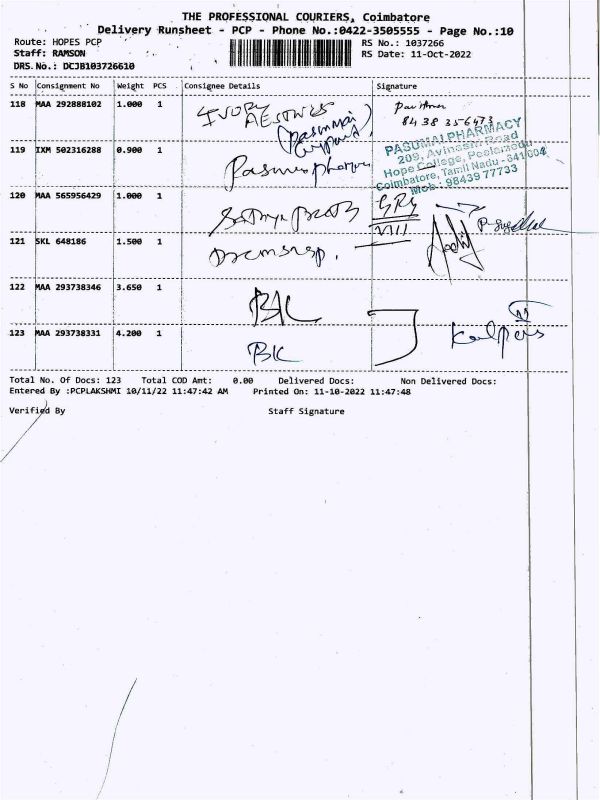 THE PROFESSIONAL COURIERS, Coimbatore
Delivery Runsheet - PCP - Phone No.:0422-3505555 - Page No.:10
Route: HOPES PCP
Staff: RAMSON
DRS.No.: DCJB103726610
RS No.: 1037266
RS Date: 11-Oct-2022
S No Consignment No Weight PCS Consignee Details Signature
118 MAA 292888102 1.000 1
8438356473
PASUMAI PHARMACY
209, Avinashi Road
Hope College, Peelamedu
Coimbatore, Tamil Nadu - 641 004
Mob : 98439 77733
119 IXM 502316288 0.900 1
120 MAA 565956429 1.000 1
121 SKL 648186 1.500 1
122 MAA 293738346 3.650 1 BK
123 MAA 293738331 4.200 1 BK
Total No. Of Docs: 123 Total COD Amt: 0.00 Delivered Docs: Non Delivered Docs:
Entered By :PCPLAKSHMI 10/11/22 11:47:42 AM Printed On: 11-10-2022 11:47:48
Verified By Staff Signature